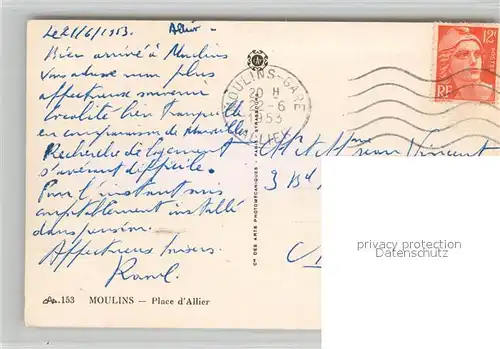 Le 21/6/1953. Allier
Bien arrivé à Moulins
vous adresse mon plus
affectueux souvenir
Localité bien tranquille
en comparaison de Marseille
Recherche de logement
s'avérant difficile.
Pour l'instant suis
installé
dans pension.
Affectueux baisers.
Raoul.
153 MOULINS — Place d'Allier
CIE DES ARTS PHOTOMÉCANIQUES
MOULINS-GARE
20 H
22-6
1953
ALLIER
12F
POSTES
RF
M et Mme Jean Vincent
3 Bd
privacy protection
Datenschutz